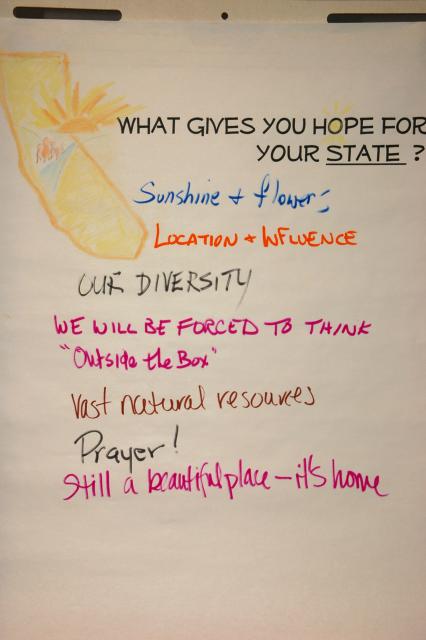 WHAT GIVES YOU HOPE FOR
YOUR STATE ?
Sunshine + flowers
LOCATION + INFLUENCE
OUR DIVERSITY
WE WILL BE FORCED TO THINK
"Outside the Box"
Vast natural resources
Prayer!
Still a beautiful place - it's home